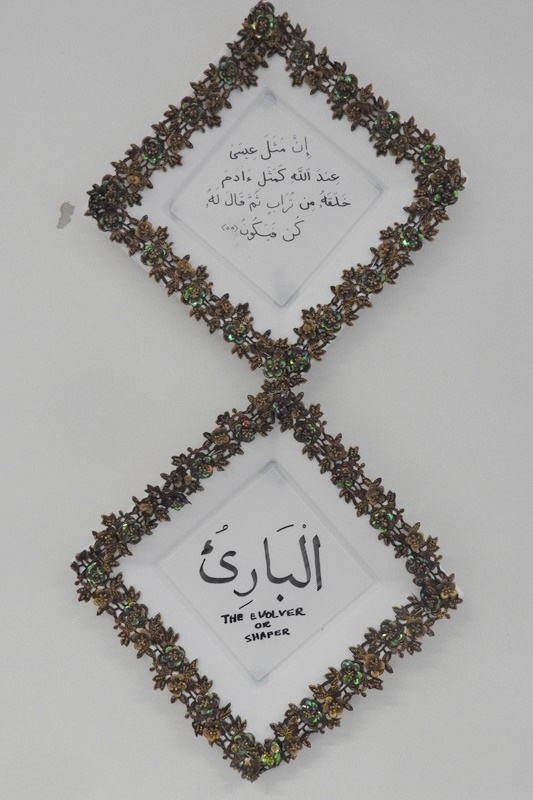 إِنَّ مَثَلَ عِيسَىٰ
عِندَ ٱللَّهِ كَمَثَلِ ءَادَمَ
خَلَقَهُۥ مِن تُرَابٍ ثُمَّ قَالَ لَهُۥ
كُن فَيَكُونُ ﴿٥٩﴾
الْبَارِئُ
THE EVOLVER
OR
SHAPER